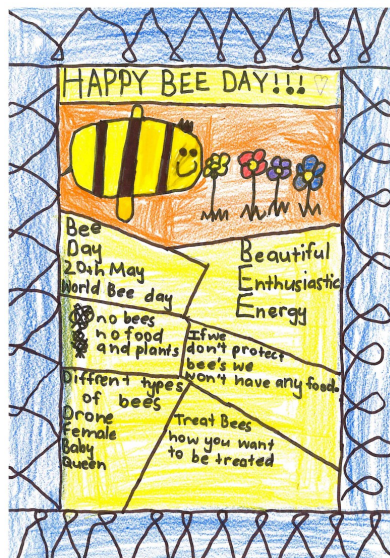 HAPPY BEE DAY!!!
Bee
Day
20th May
World Bee day
Beautiful
Enthusiastic
Energy
no bees
no food
and plants
If we
don't protect
bee's we
won't have any food.
Diffrent types
of bees
Drone
Female
Baby
Queen
Treat Bees
how you want
to be treated